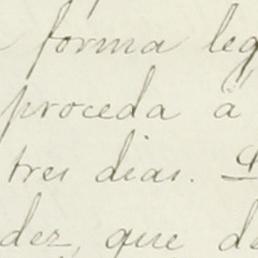 forma leg
proceda á
tres dias.
dez, que de